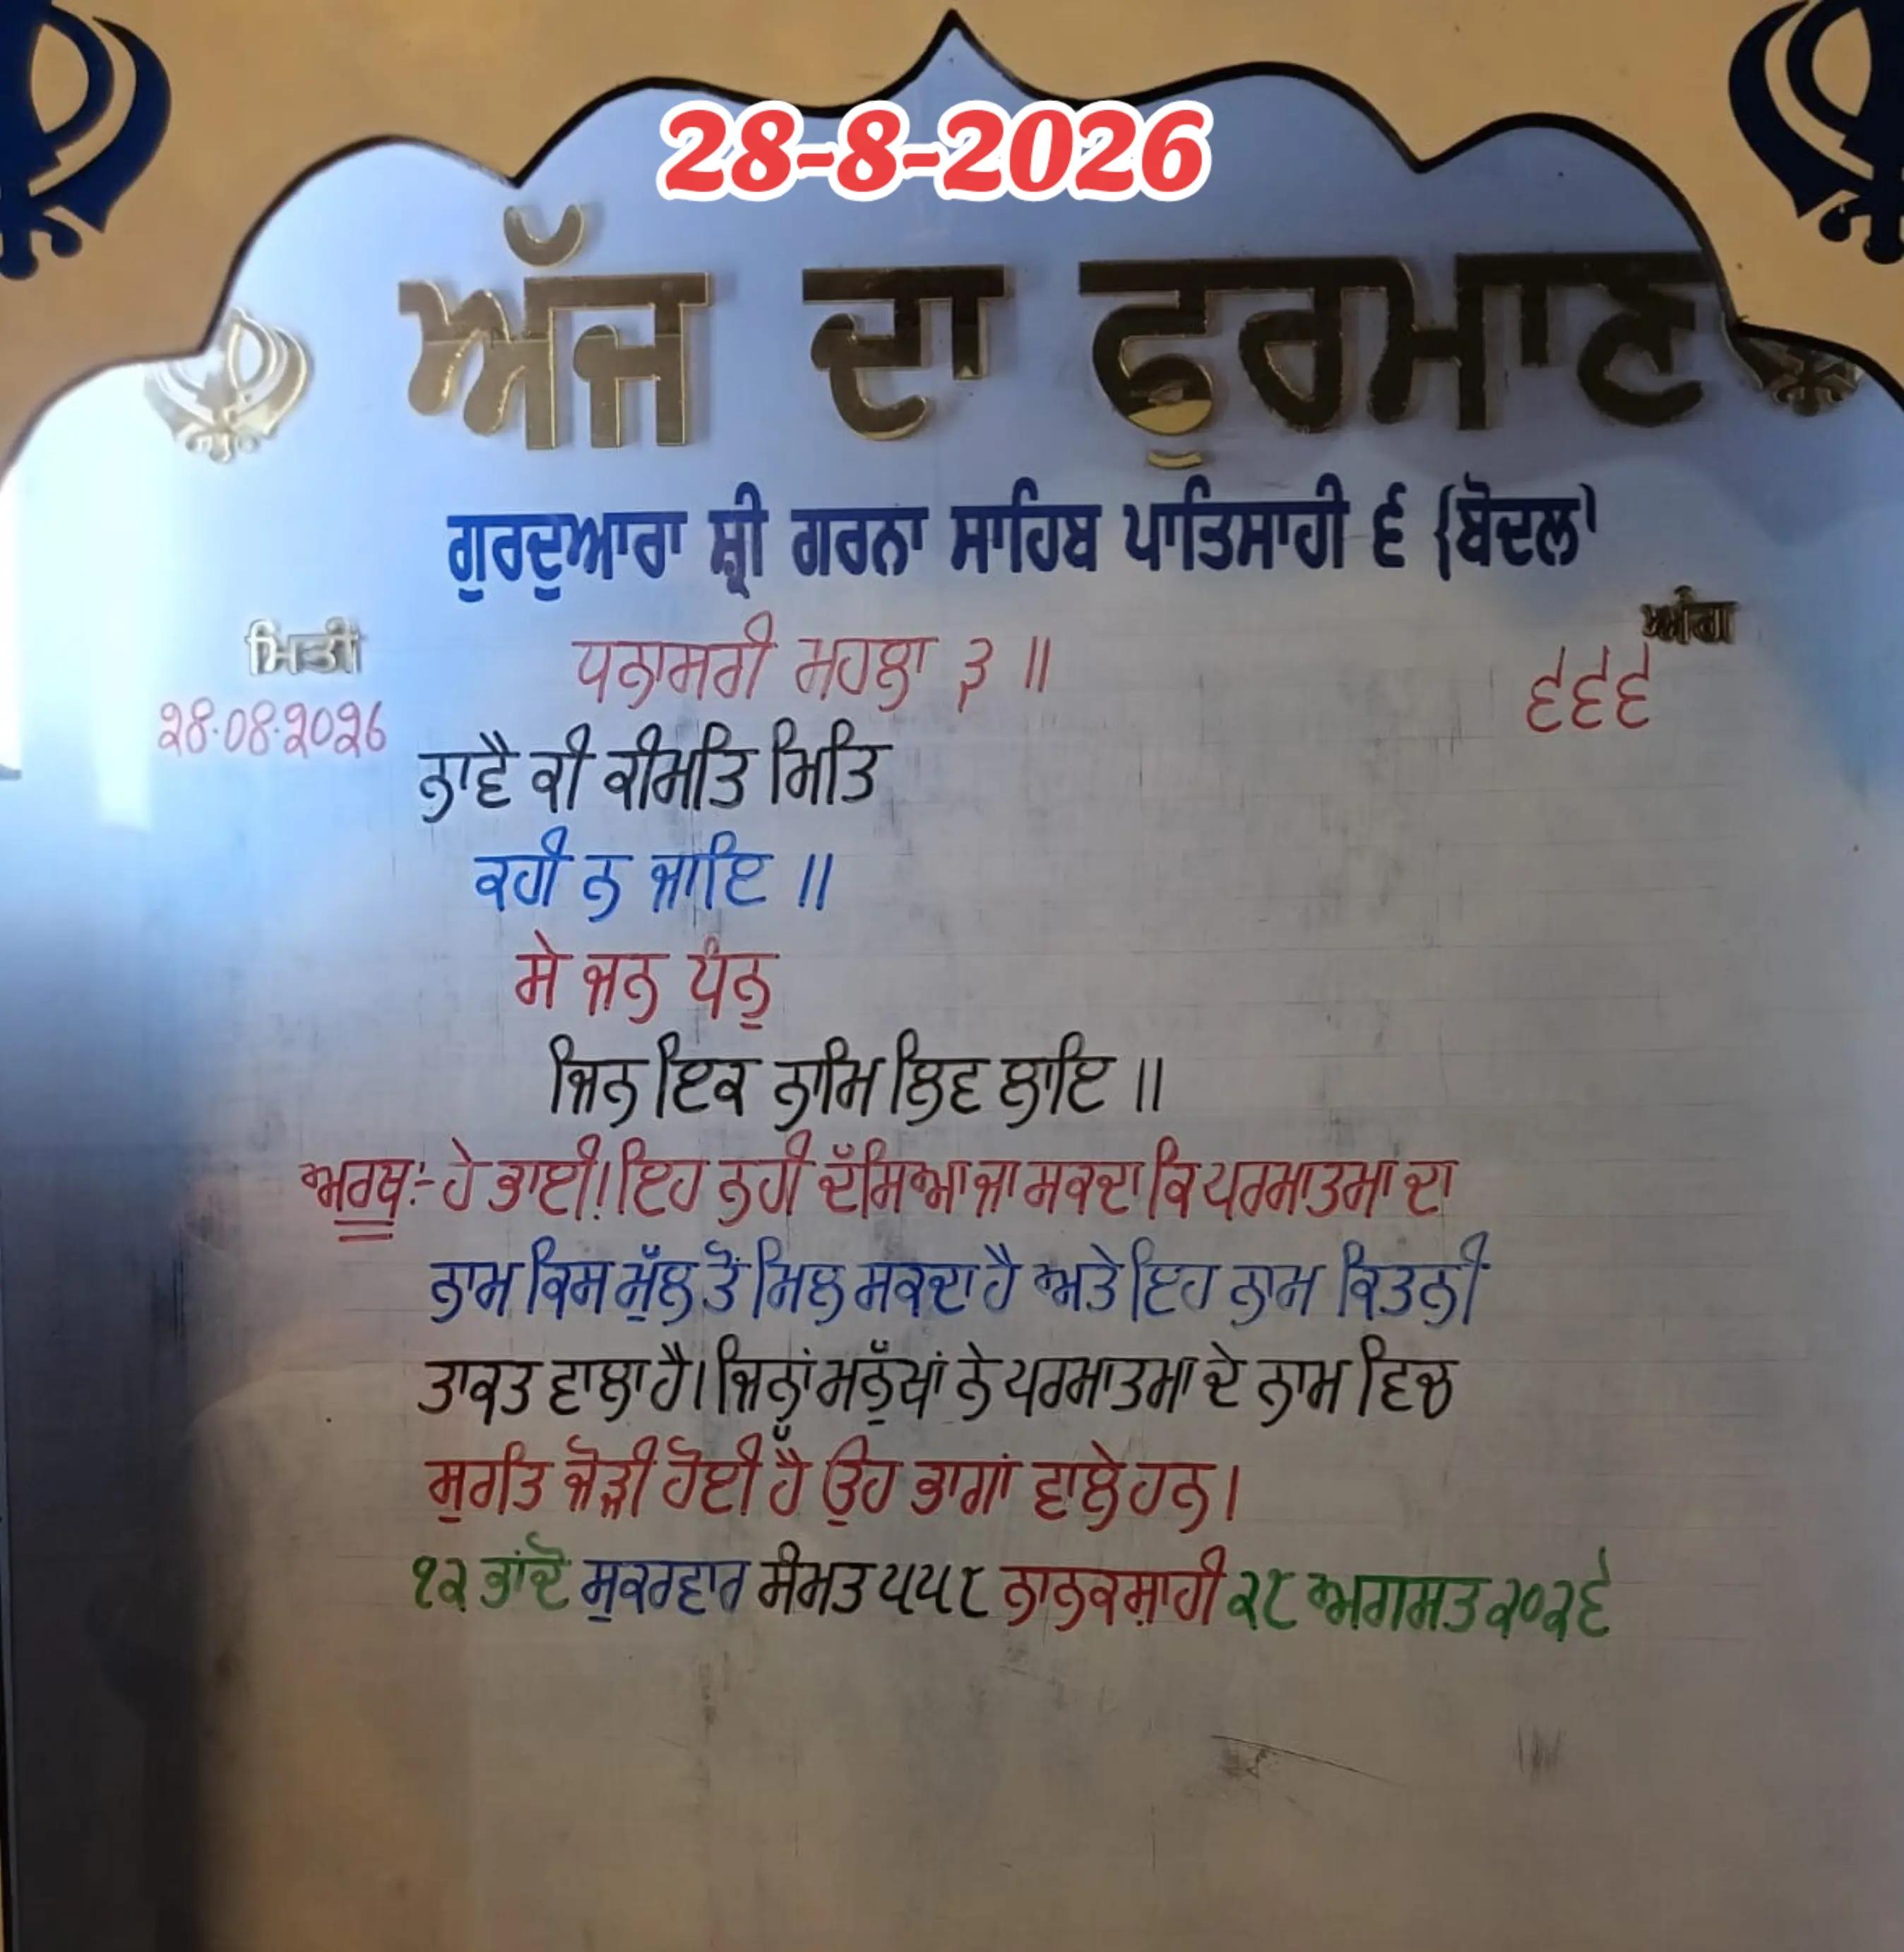 28-8-2026
ਅੱਜ ਦਾ ਫੁਰਮਾਣ
ਗੁਰਦੁਆਰਾ ਸ਼੍ਰੀ ਗਰਨਾ ਸਾਹਿਬ ਪਾਤਿਸਾਹੀ ੬ {ਬੋਦਲ}
ਮਿਤੀ
ਅੰਗ
ਧਨਾਸਰੀ ਮਹਲਾ ੩ ॥
੬੬੬
28.08.2026
ਨਾਵੈ ਕੀ ਕੀਮਤਿ ਮਿਤਿ
ਕਹੀ ਨ ਜਾਇ ॥
ਸੇ ਜਨ ਧੰਨੁ
ਜਿਨ ਇਕ ਨਾਮਿ ਲਿਵ ਲਾਇ ॥
ਅਰਥ:- ਹੇ ਭਾਈ! ਇਹ ਨਹੀ ਦੱਸਿਆ ਜਾ ਸਕਦਾ ਕਿ ਪਰਮਾਤਮਾ ਦਾ
ਨਾਮ ਕਿਸ ਮੁੱਲ ਤੋਂ ਮਿਲ ਸਕਦਾ ਹੈ ਅਤੇ ਇਹ ਨਾਮ ਕਿਤਨੀ
ਤਾਕਤ ਵਾਲਾ ਹੈ। ਜਿਨਾਂ ਮਨੁੱਖਾਂ ਨੇ ਪਰਮਾਤਮਾ ਦੇ ਨਾਮ ਵਿਚ
ਸੁਰਤਿ ਜੋੜੀ ਹੋਈ ਹੈ ਉਹ ਭਾਗਾਂ ਵਾਲੇ ਹਨ।
੧੨ ਭਾਂਦੋ ਸੁਕਰਵਾਰ ਸੰਮਤ ੫੫੮ ਨਾਨਕਸ਼ਾਹੀ ੨੮ ਅਗਸਤ ੨੦੨੬